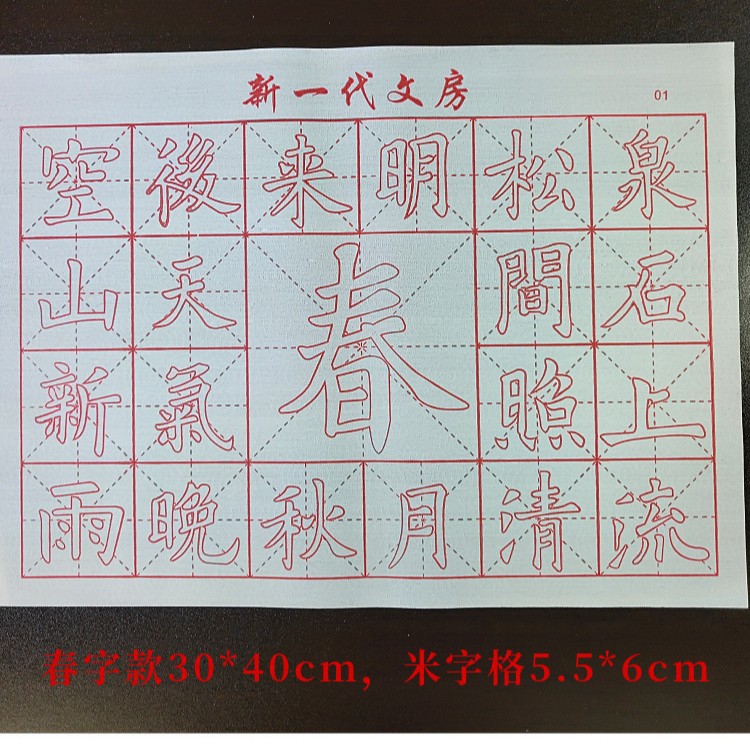 新一代文房
01
空山新雨
後天氣晚
来
春
秋
明
月
松間照清
泉石上流
春字款30*40cm，米字格5.5*6cm